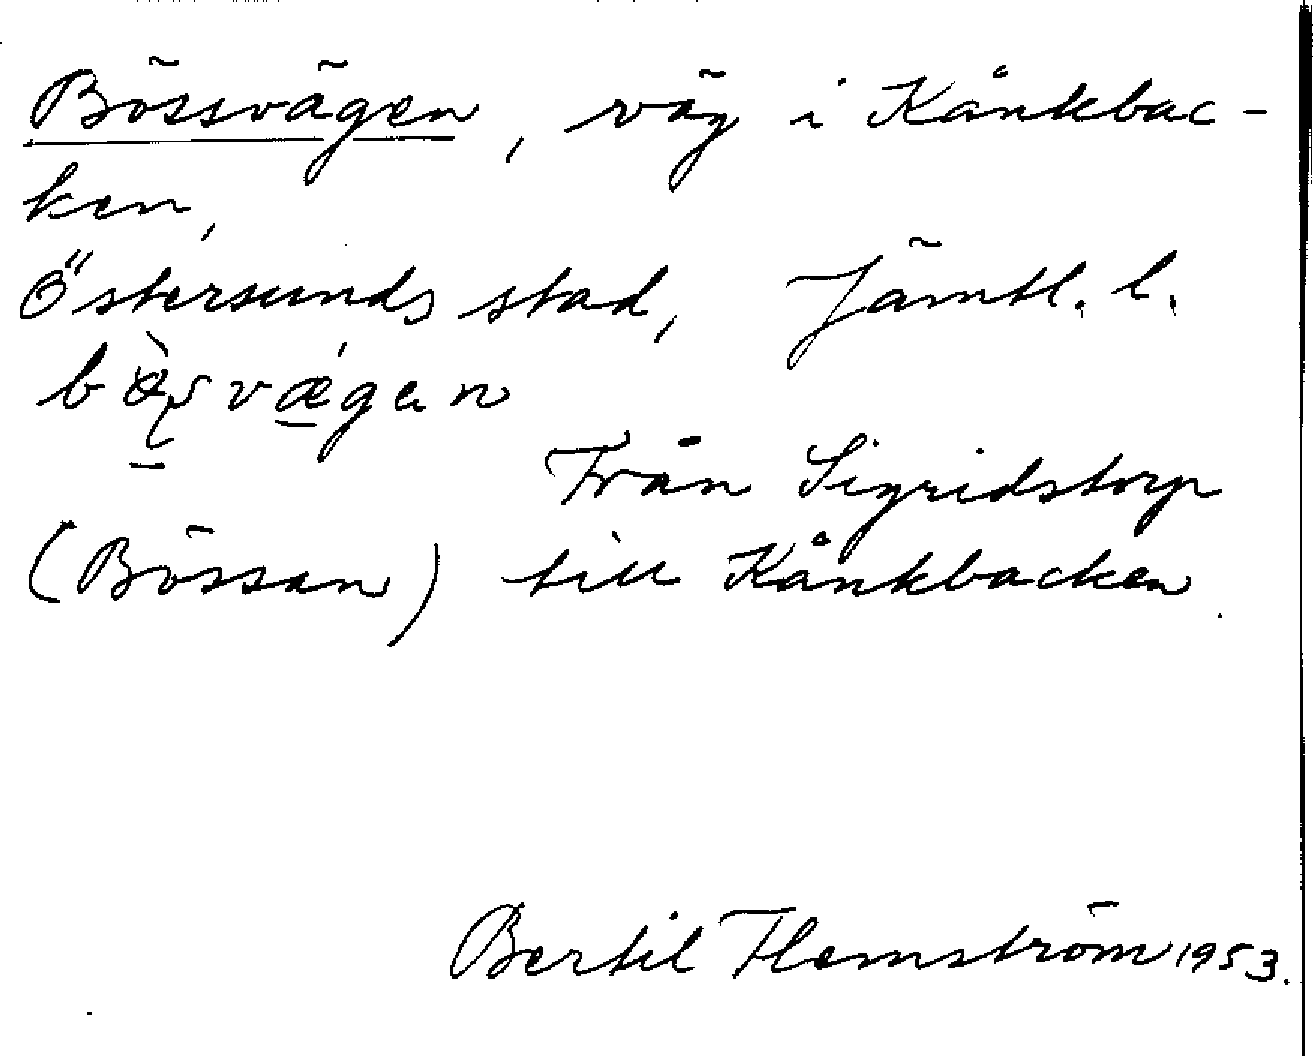 Bössvägen, väg i Kånkbac-
ken,
Östersunds stad, Jämtl. l.
Från Sigridstorp
(Bössan) till Kånkbacken
Bertil Flemström 1953.